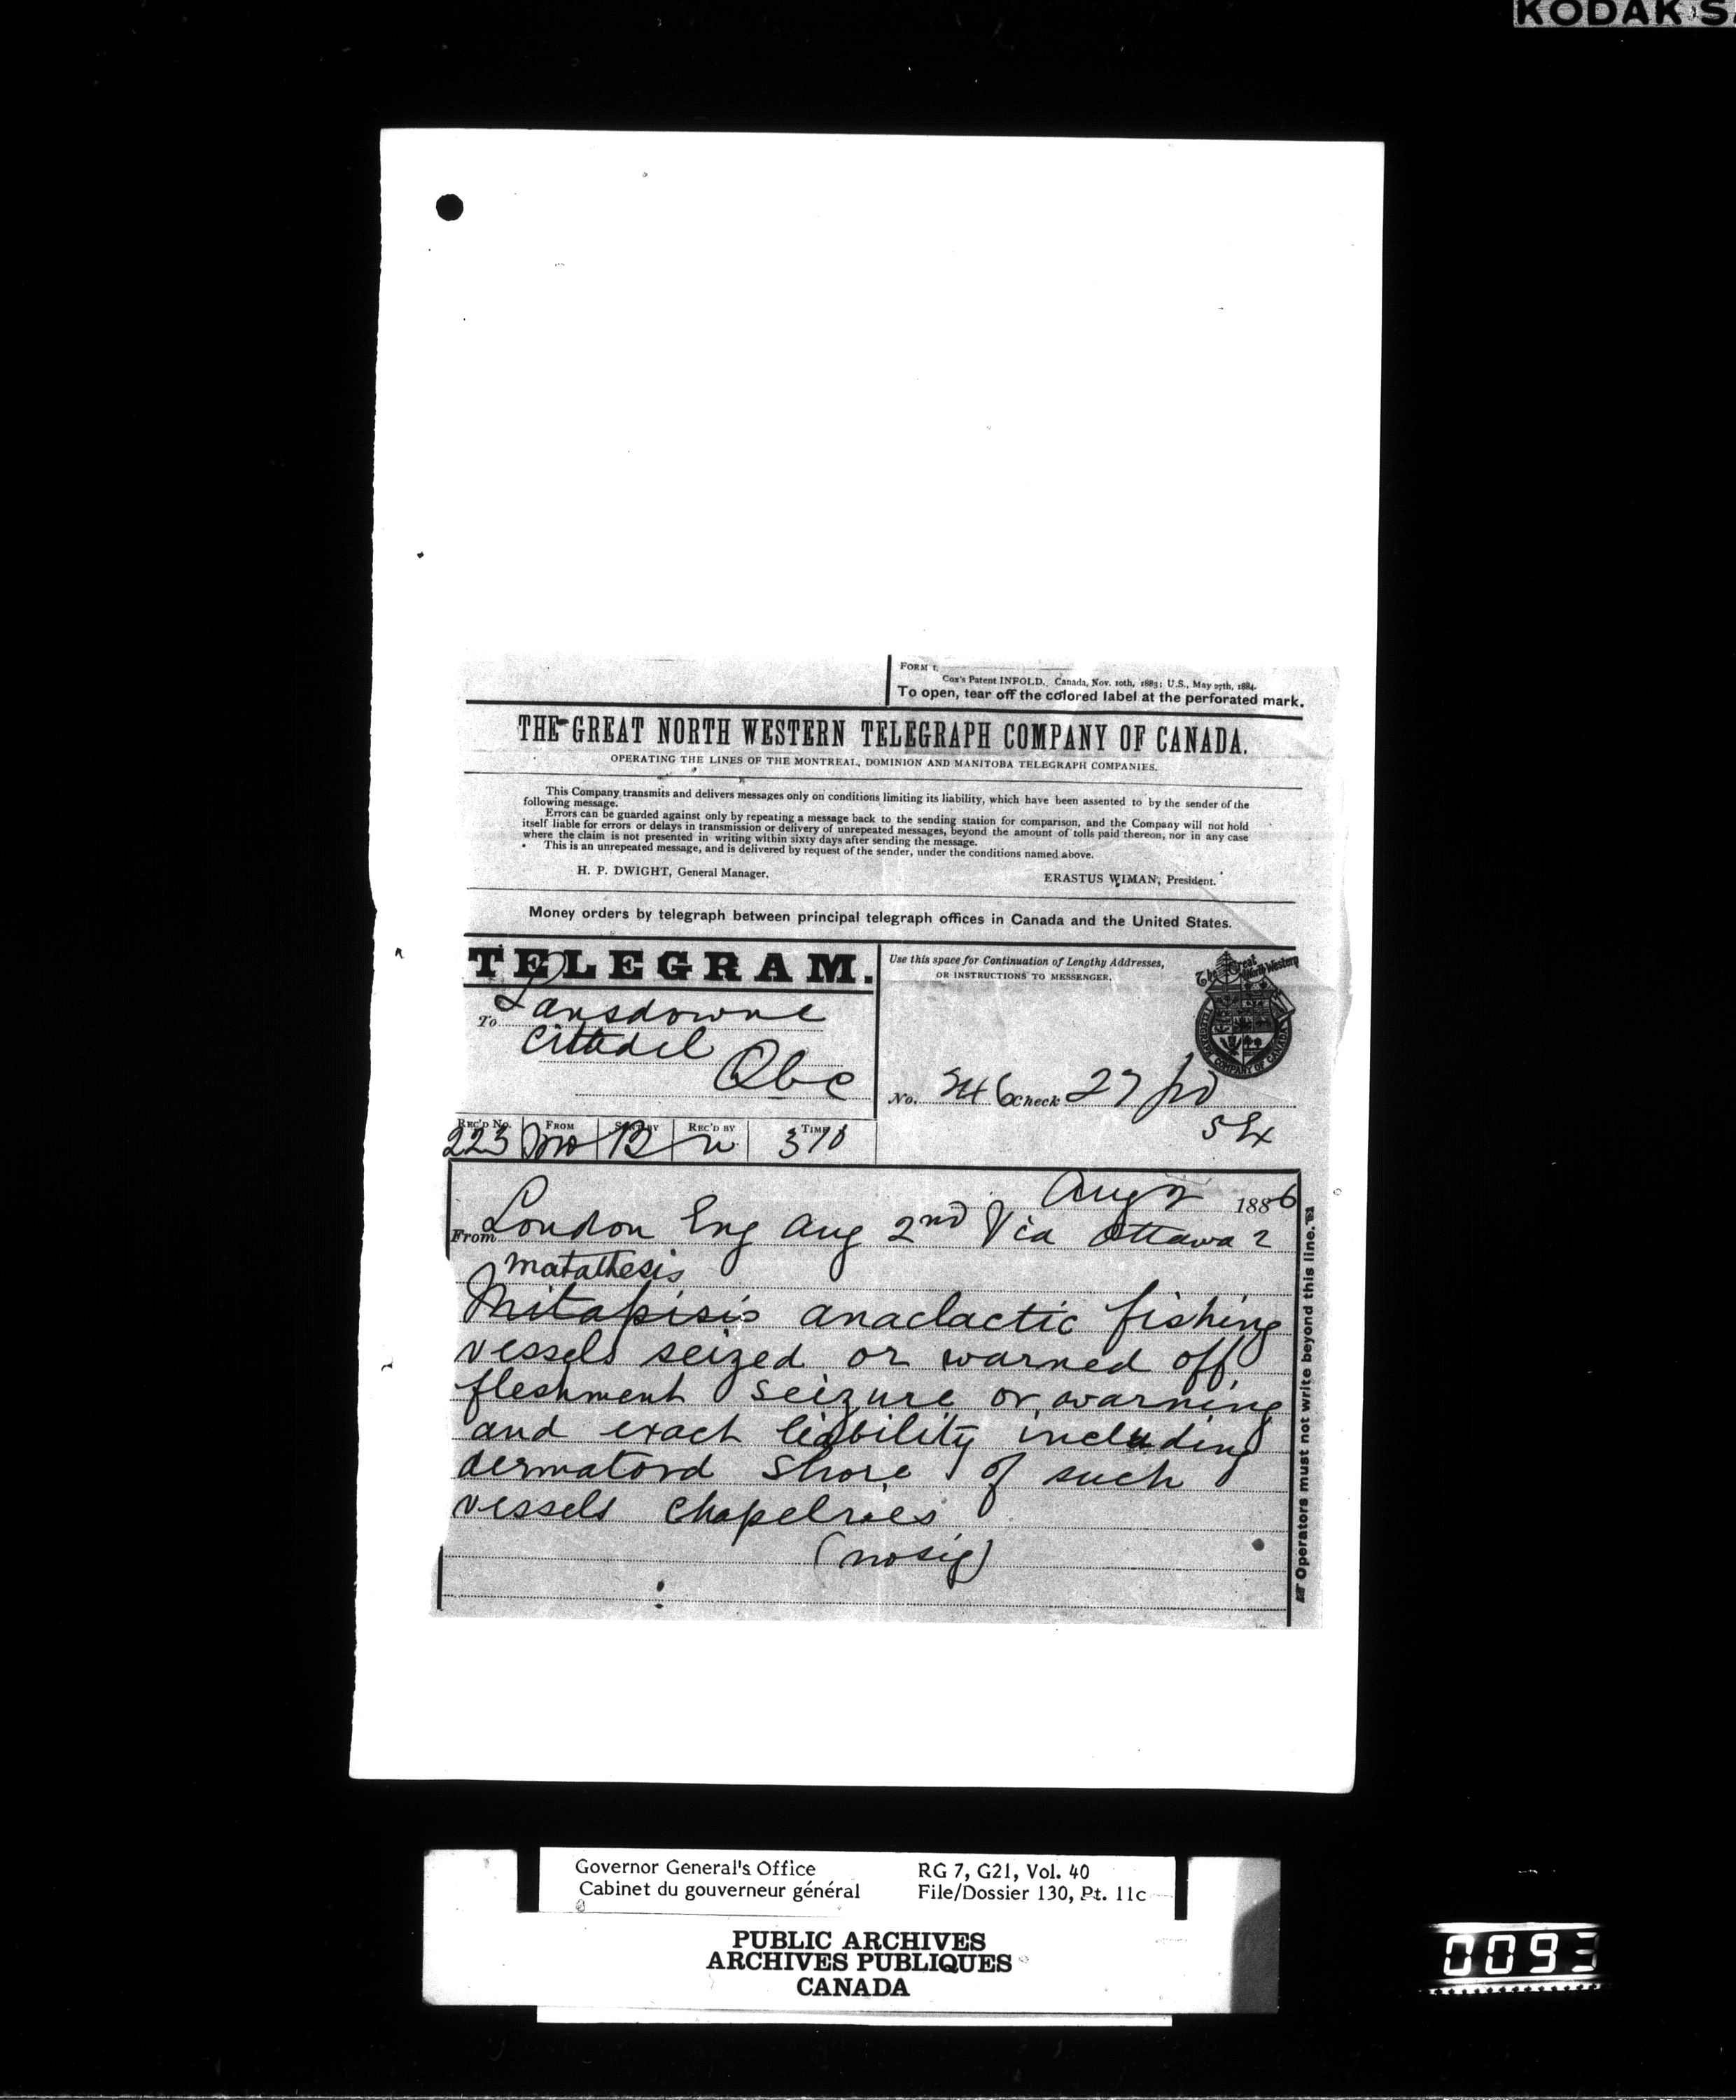 KODAK S
FORM 1.
Cox's Patent INFOLD. Canada, Nov. 10th, 1883; U.S., May 27th, 1884.
To open, tear off the colored label at the perforated mark.
THE GREAT NORTH WESTERN TELEGRAPH COMPANY OF CANADA.
OPERATING THE LINES OF THE MONTREAL, DOMINION AND MANITOBA TELEGRAPH COMPANIES.
This Company transmits and delivers messages only on conditions limiting its liability, which have been assented to by the sender of the
following message.
Errors can be guarded against only by repeating a message back to the sending station for comparison, and the Company will not hold
itself liable for errors or delays in transmission or delivery of unrepeated messages, beyond the amount of tolls paid thereon, nor in any case
where the claim is not presented in writing within sixty days after sending the message.
This is an unrepeated message, and is delivered by request of the sender, under the conditions named above.
H. P. DWIGHT, General Manager.
ERASTUS WIMAN, President.
Money orders by telegraph between principal telegraph offices in Canada and the United States.
TELEGRAM.
Use this space for Continuation of Lengthy Addresses,
OR INSTRUCTIONS TO MESSENGER.
The Great North Western
TELEGRAPH COMPANY OF CANADA
To Lansdowne
Citadel
Qbc
No. 246 Check 27 pd
REC'D No. FROM SENT BY REC'D BY TIME
223 Mo B 310
Aug 2 1886
From London Eng Aug 2nd Via Ottawa 2
matathesis
Mitapisis anaclactic fishing
vessels seized or warned off
fleshment seizure or warning
and exact liability including
dermatoid shore of such
vessels chapelries
(no sig)
Operators must not write beyond this line.
Governor General's Office
Cabinet du gouverneur général
RG 7, G21, Vol. 40
File/Dossier 130, Pt. 11c
PUBLIC ARCHIVES
ARCHIVES PUBLIQUES
CANADA
0093